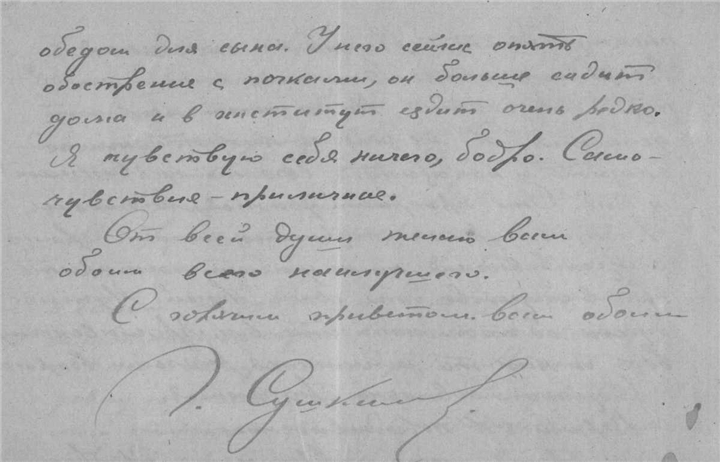 обедом для сына. У него сейчас опять
обострение с почками, он больше сидит
дома и в институт ездит очень редко.
Я чувствую себя ничего, бодро. Само-
чувствие – приличное.
От всей души желаю вам
обоим всего наилучшего.
С горячим приветом вам обоим
Сушкин